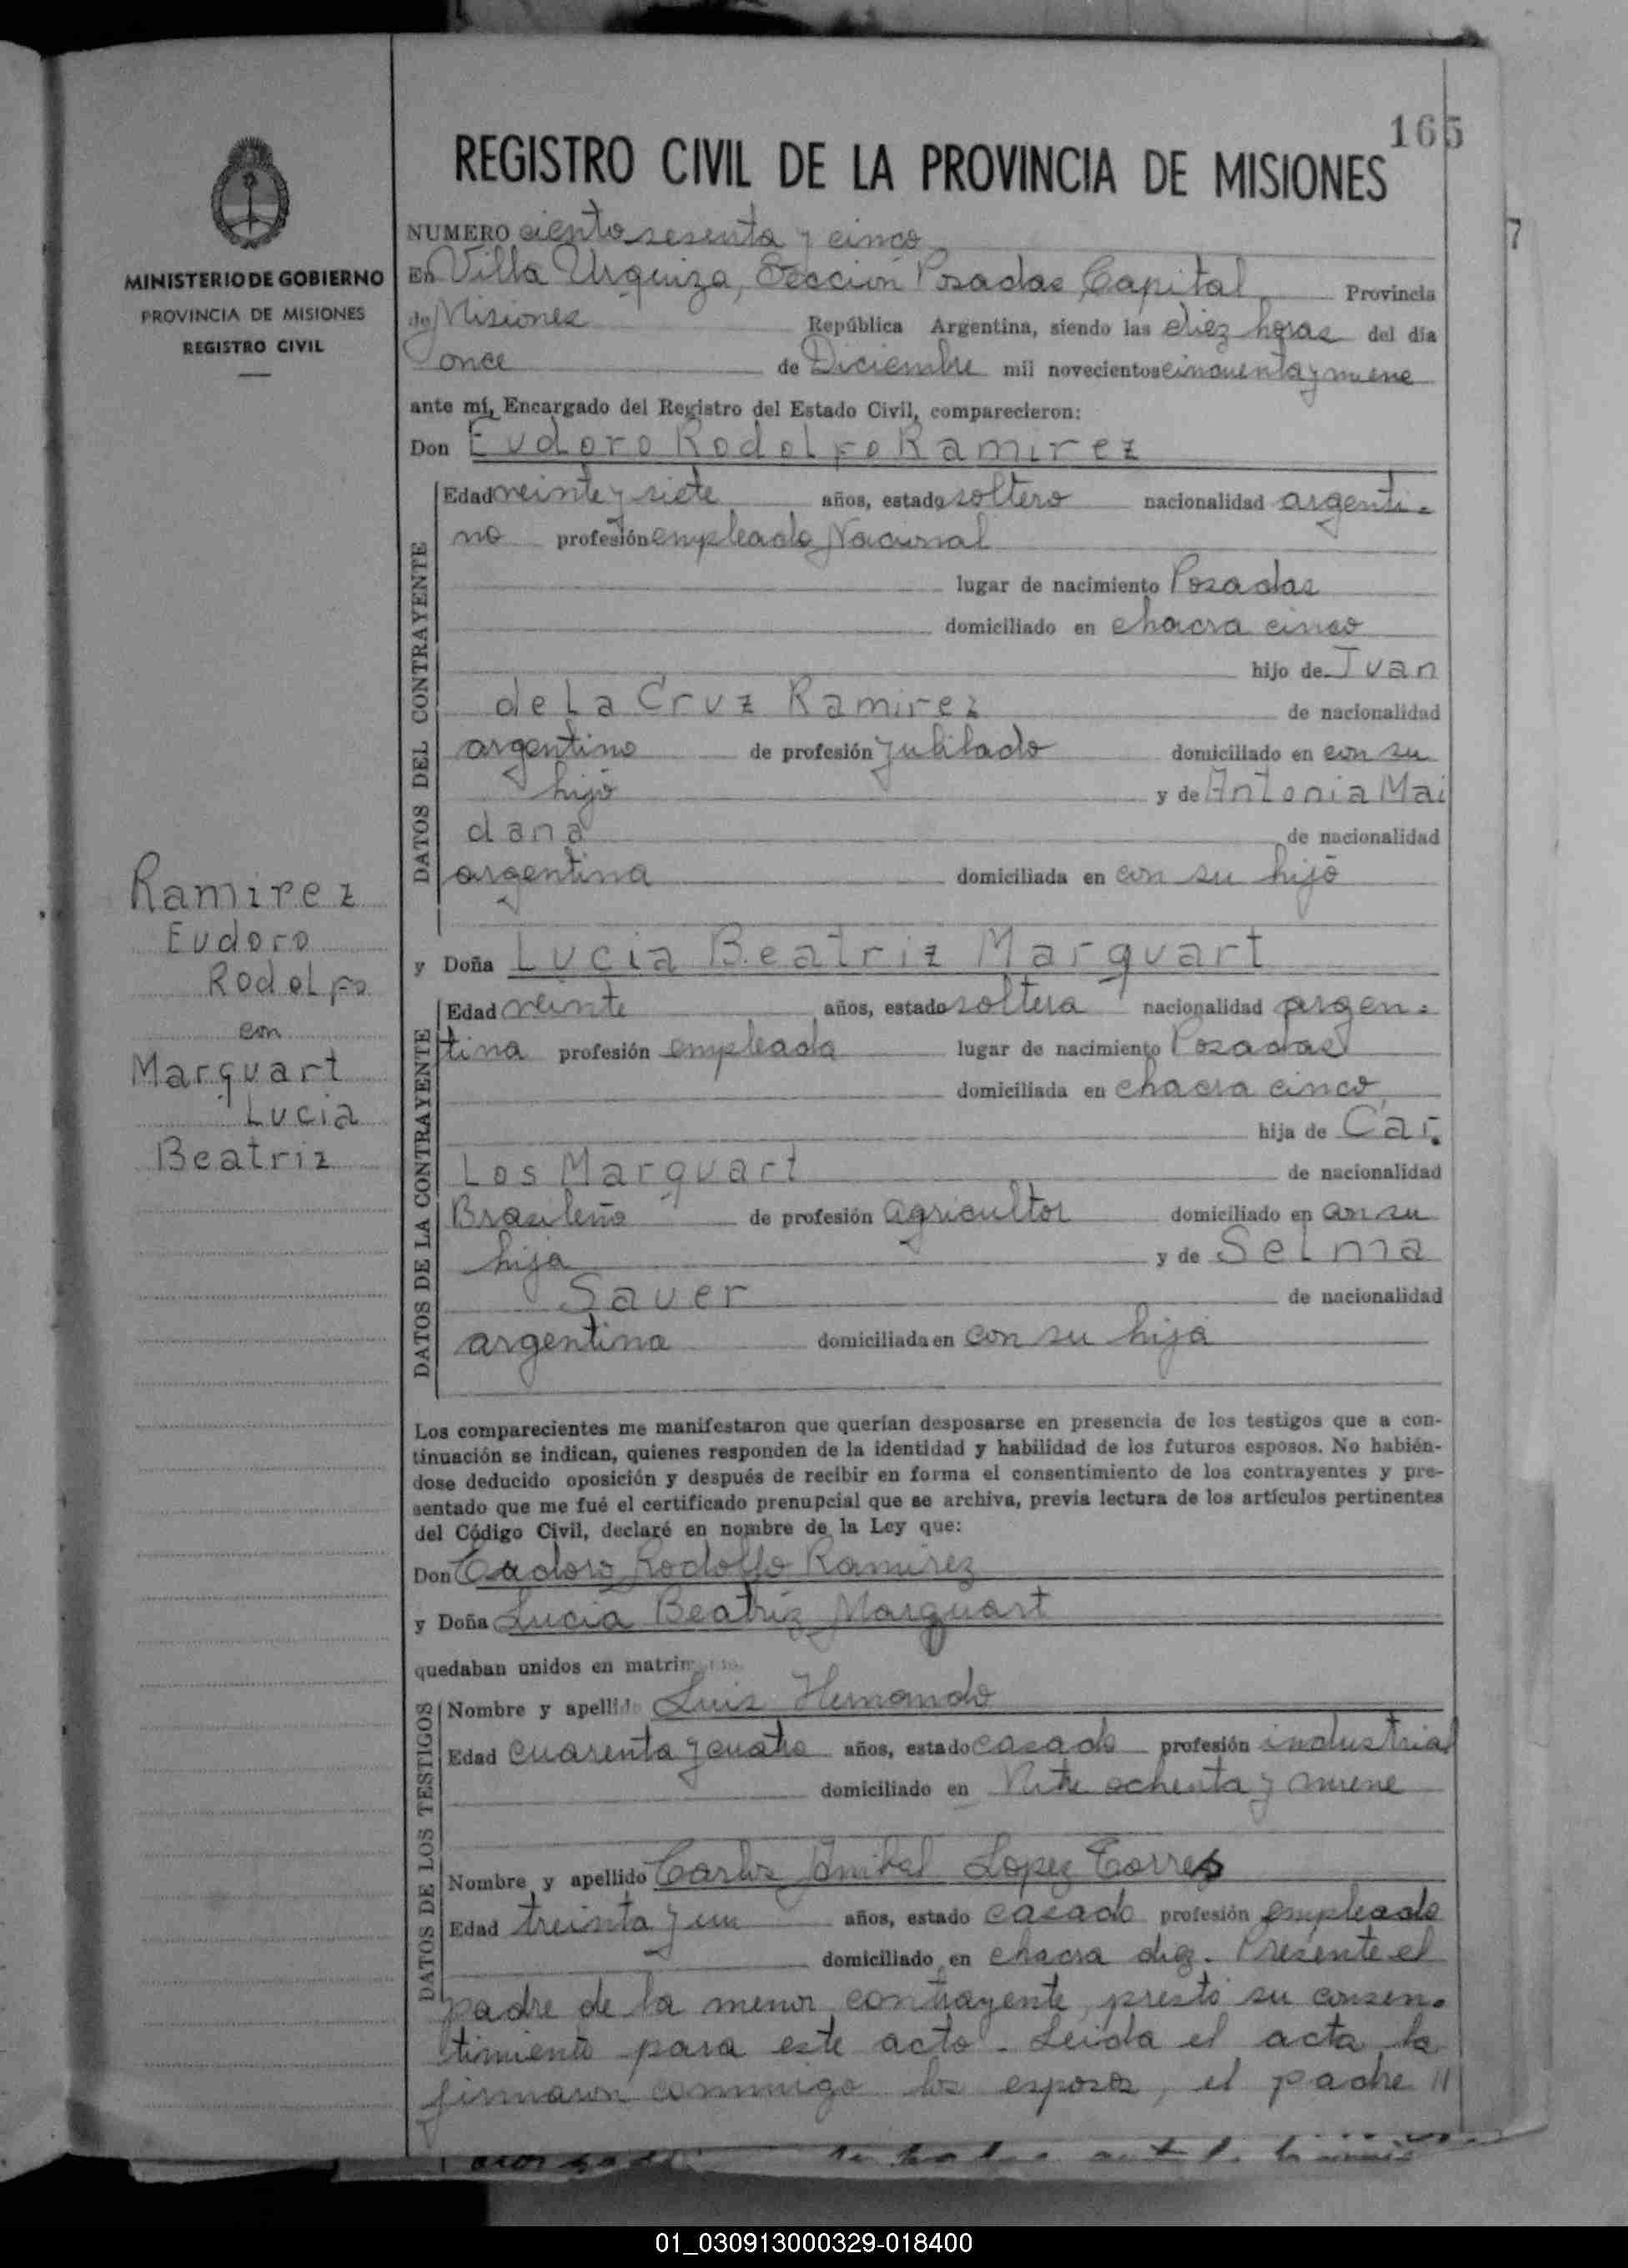 165
REGISTRO CIVIL DE LA PROVINCIA DE MISIONES
MINISTERIO DE GOBIERNO
PROVINCIA DE MISIONES
REGISTRO CIVIL
Ramirez
Eudoro
Rodolfo
con
Marquart
Lucia
Beatriz
NUMERO ciento sesenta y cinco
En Villa Urquiza, Sección Posadas, Capital Provincia
de Misiones República Argentina, siendo las diez horas del día
once de Diciembre mil novecientos cincuenta y nueve
ante mí, Encargado del Registro del Estado Civil, comparecieron:
Don Eudoro Rodolfo Ramirez
DATOS DEL CONTRAYENTE
Edad veinte y siete años, estado soltero nacionalidad argenti-
no profesión empleado Nacional
lugar de nacimiento Posadas
domiciliado en chacra cinco
hijo de Juan
de La Cruz Ramirez de nacionalidad
argentino de profesión jubilado domiciliado en con su
hijo y de Antonia Mai
dana de nacionalidad
argentina domiciliada en con su hijo
y Doña Lucia Beatriz Marquart
DATOS DE LA CONTRAYENTE
Edad veinte años, estado soltera nacionalidad argen-
tina profesión empleada lugar de nacimiento Posadas
domiciliada en chacra cinco
hija de Car-
Los Marquart de nacionalidad
Brasileño de profesión agricultor domiciliado en con su
hija y de Selma
Sauer de nacionalidad
argentina domiciliada en con su hija
Los comparecientes me manifestaron que querían desposarse en presencia de los testigos que a con-
tinuación se indican, quienes responden de la identidad y habilidad de los futuros esposos. No habién-
dose deducido oposición y después de recibir en forma el consentimiento de los contrayentes y pre-
sentado que me fué el certificado prenupcial que se archiva, previa lectura de los artículos pertinentes
del Código Civil, declaré en nombre de la Ley que:
Don Eudoro Rodolfo Ramirez
y Doña Lucia Beatriz Marquart
quedaban unidos en matrimonio
DATOS DE LOS TESTIGOS
Nombre y apellido Luis Hernando
Edad cuarenta y cuatro años, estado casado profesión industrial
domiciliado en Mitre ochenta y nueve
Nombre y apellido Carlos Anibal Lopez Torres
Edad treinta y un años, estado casado profesión empleado
domiciliado en chacra diez. Presente el
padre de la menor contrayente, prestó su consen-
timiento para este acto. Leida el acta, la
firmaron conmigo los esposos, el padre //
7
01_030913000329-018400